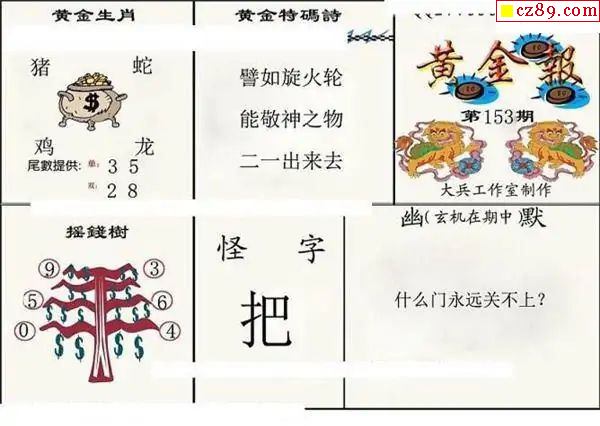 cz89.com
黄金生肖
猪 蛇
$
鸡 龙
尾數提供: 单: 3 5
双: 2 8
黄金特碼詩
譬如旋火轮
能敬神之物
二一出来去
黄金報
第153期
大兵工作室制作
摇錢樹
9 3
5 6
0 4
$ $ $ $ $ $ $
怪 字
把
幽(玄机在期中)默
什么门永远关不上?